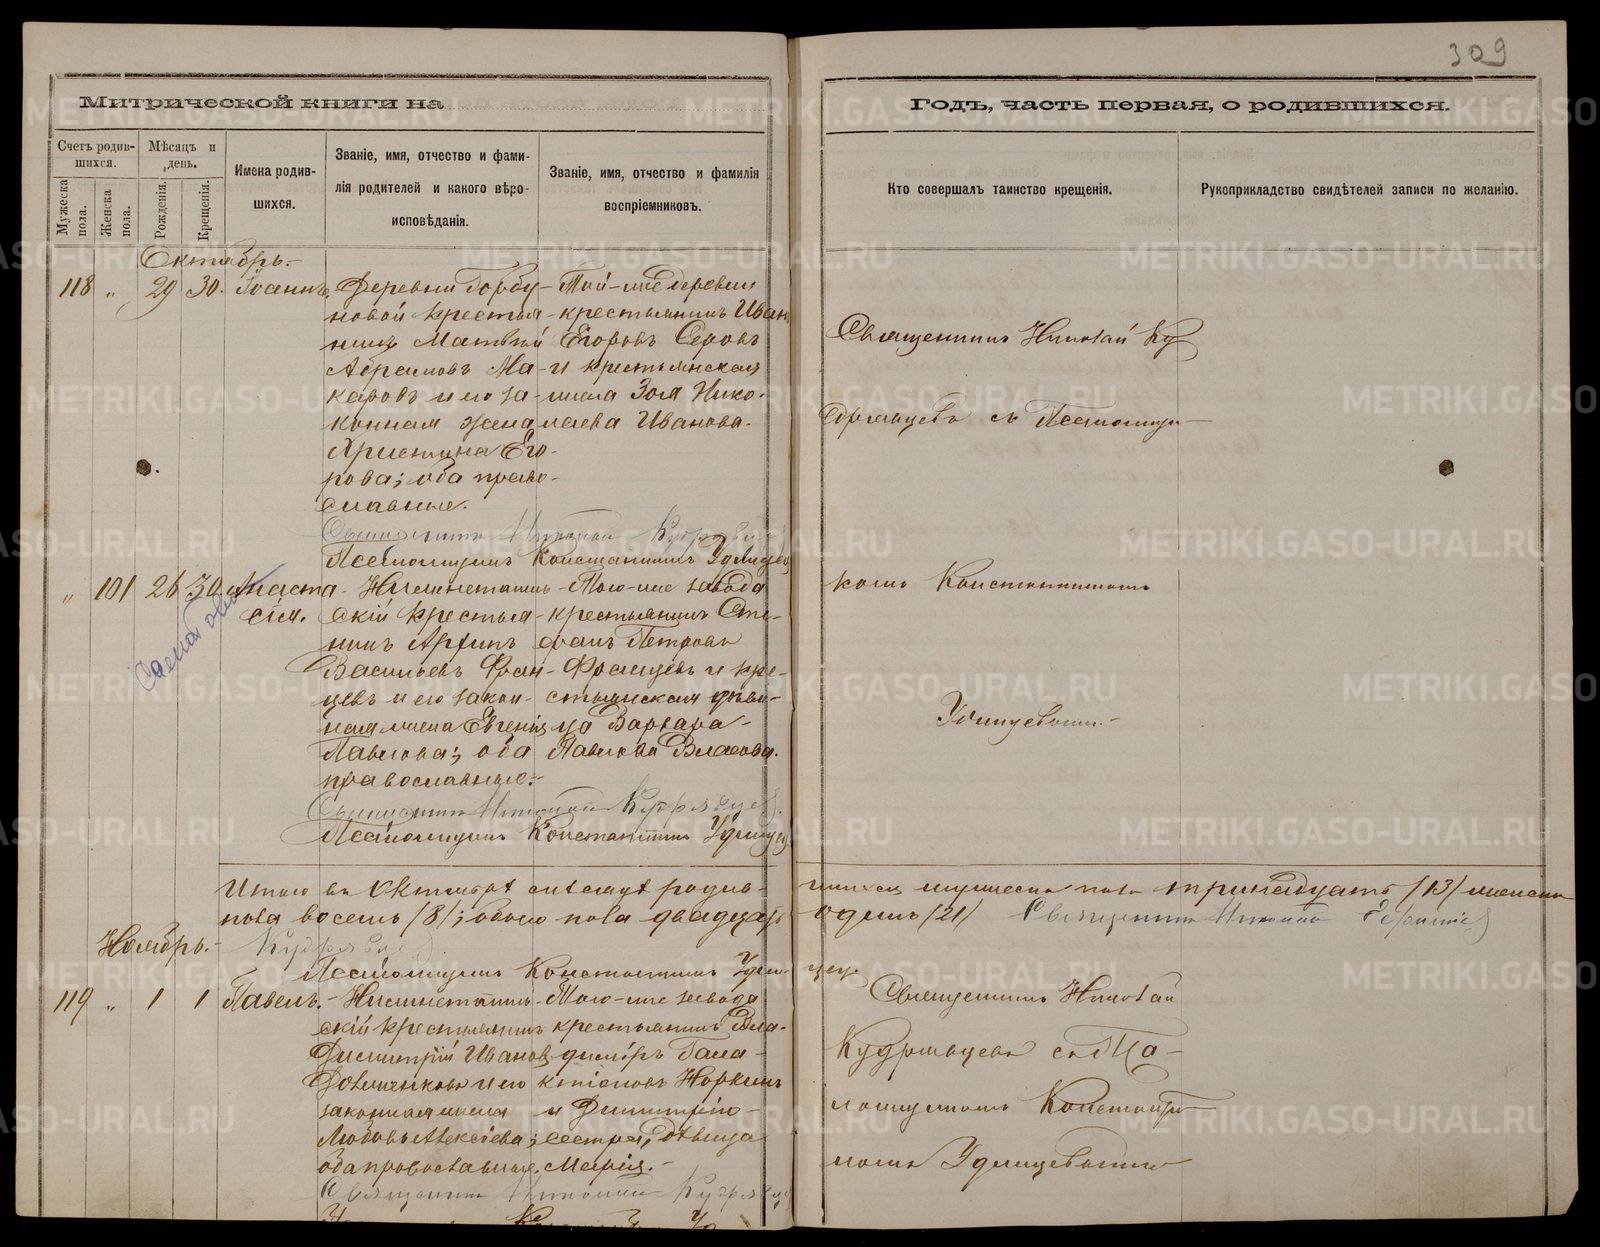 309
Митрической книги на
Годъ, часть первая, о родившихся.
Счетъ родив-
шихся.
Мужеска
пола.
Женска
пола.
Мѣсяцъ и
день.
Рожденія.
Крещенія.
Имена родив-
шихся.
Званіе, имя, отчество и фами-
лія родителей и какого вѣро-
исповѣданія.
Званіе, имя, отчество и фамилія
воспріемниковъ.
Кто совершалъ таинство крещенія.
Рукоприкладство свидѣтелей записи по желанію.
Октябрь.-
118 " 29 30. Іоаннъ.
Деревни Горбу-
новой крестья-
нинъ Матвѣй
Абрамовъ Ма-
каровъ и его за-
конная жена
Христина Его-
рова; оба право-
славные.
Той-же деревни
крестьянинъ Иван
Егоровъ Серовъ
и крестьянская
жена Зоя Нико-
лаева Иванова.
Священникъ Николай Ку-
дрявцевъ съ Псаломщи-
Священникъ Николай Кудрявцев
Псаломщикъ Константинъ Удинцев
" 101 26 30. Анаста-
сія.
Нижнетагиль-
скій крестья-
нинъ Архипъ
Васильевъ Фран-
цевъ и его закон-
ная жена Евгенія
Павлова; оба
православные.-
Того-же завода
крестьянинъ Сте-
фанъ Петровъ
Францевъ и кре-
стьянская дѣви-
ца Варвара
Павлова Власова.
комъ Константиномъ
Удинцевымъ.-
Священникъ Николай Кудрявцев.
Псаломщикъ Константинъ Удинцев
Итого въ Октябрѣ мѣсяцѣ родив-
шихся мужеска пола тринадцать /13/ женска
пола восемь /8/; обоего пола двадцать
одинъ /21/ Священникъ Николай
Кудрявцев
Ноябрь.-
Псаломщикъ Константинъ Удин-
цев.
119 " 1 1 Павелъ.-
Нижнетагиль-
скій крестьянинъ
Димитрій Иванов
и его
законная жена
Любовь Алексіева;
оба православные.
Того-же завода
крестьянинъ Вла-
диміръ Гала-
ктіоновъ Норкинъ
и Димитрія
сестра, дѣвица
Марія.-
Священникъ Николай
Кудрявцевъ съ Пса-
ломщикомъ Константи-
номъ Удинцевымъ
Священникъ Николай Кудрявцев
METRIKI.GASO-URAL.RU